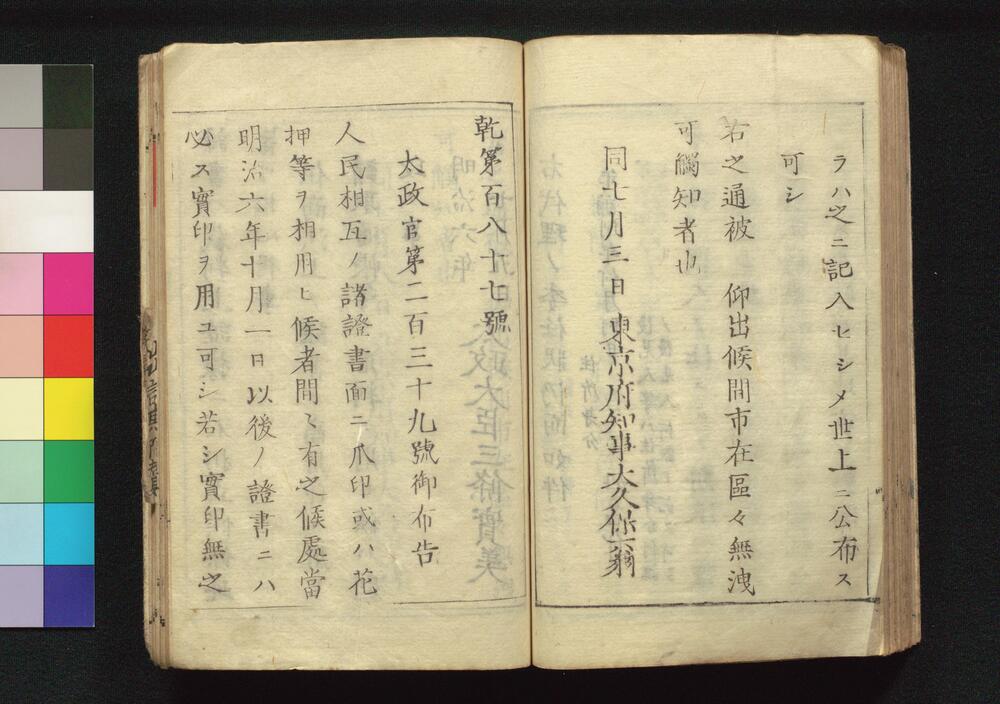 ラハ之ニ記入セシメ世上ニ公布ス
可シ
右之通被　仰出候間市在區々無洩
可觸知者也
同七月三日　東京府知事大久保一翁
乾第百八十七號
太政官第二百三十九號御布告
人民相互ノ諸證書面ニ爪印或ハ花
押等ヲ相用ヒ候者間々有之候處當
明治六年十月一日以後ノ證書ニハ
必ス實印ヲ用ユ可シ若シ實印無之